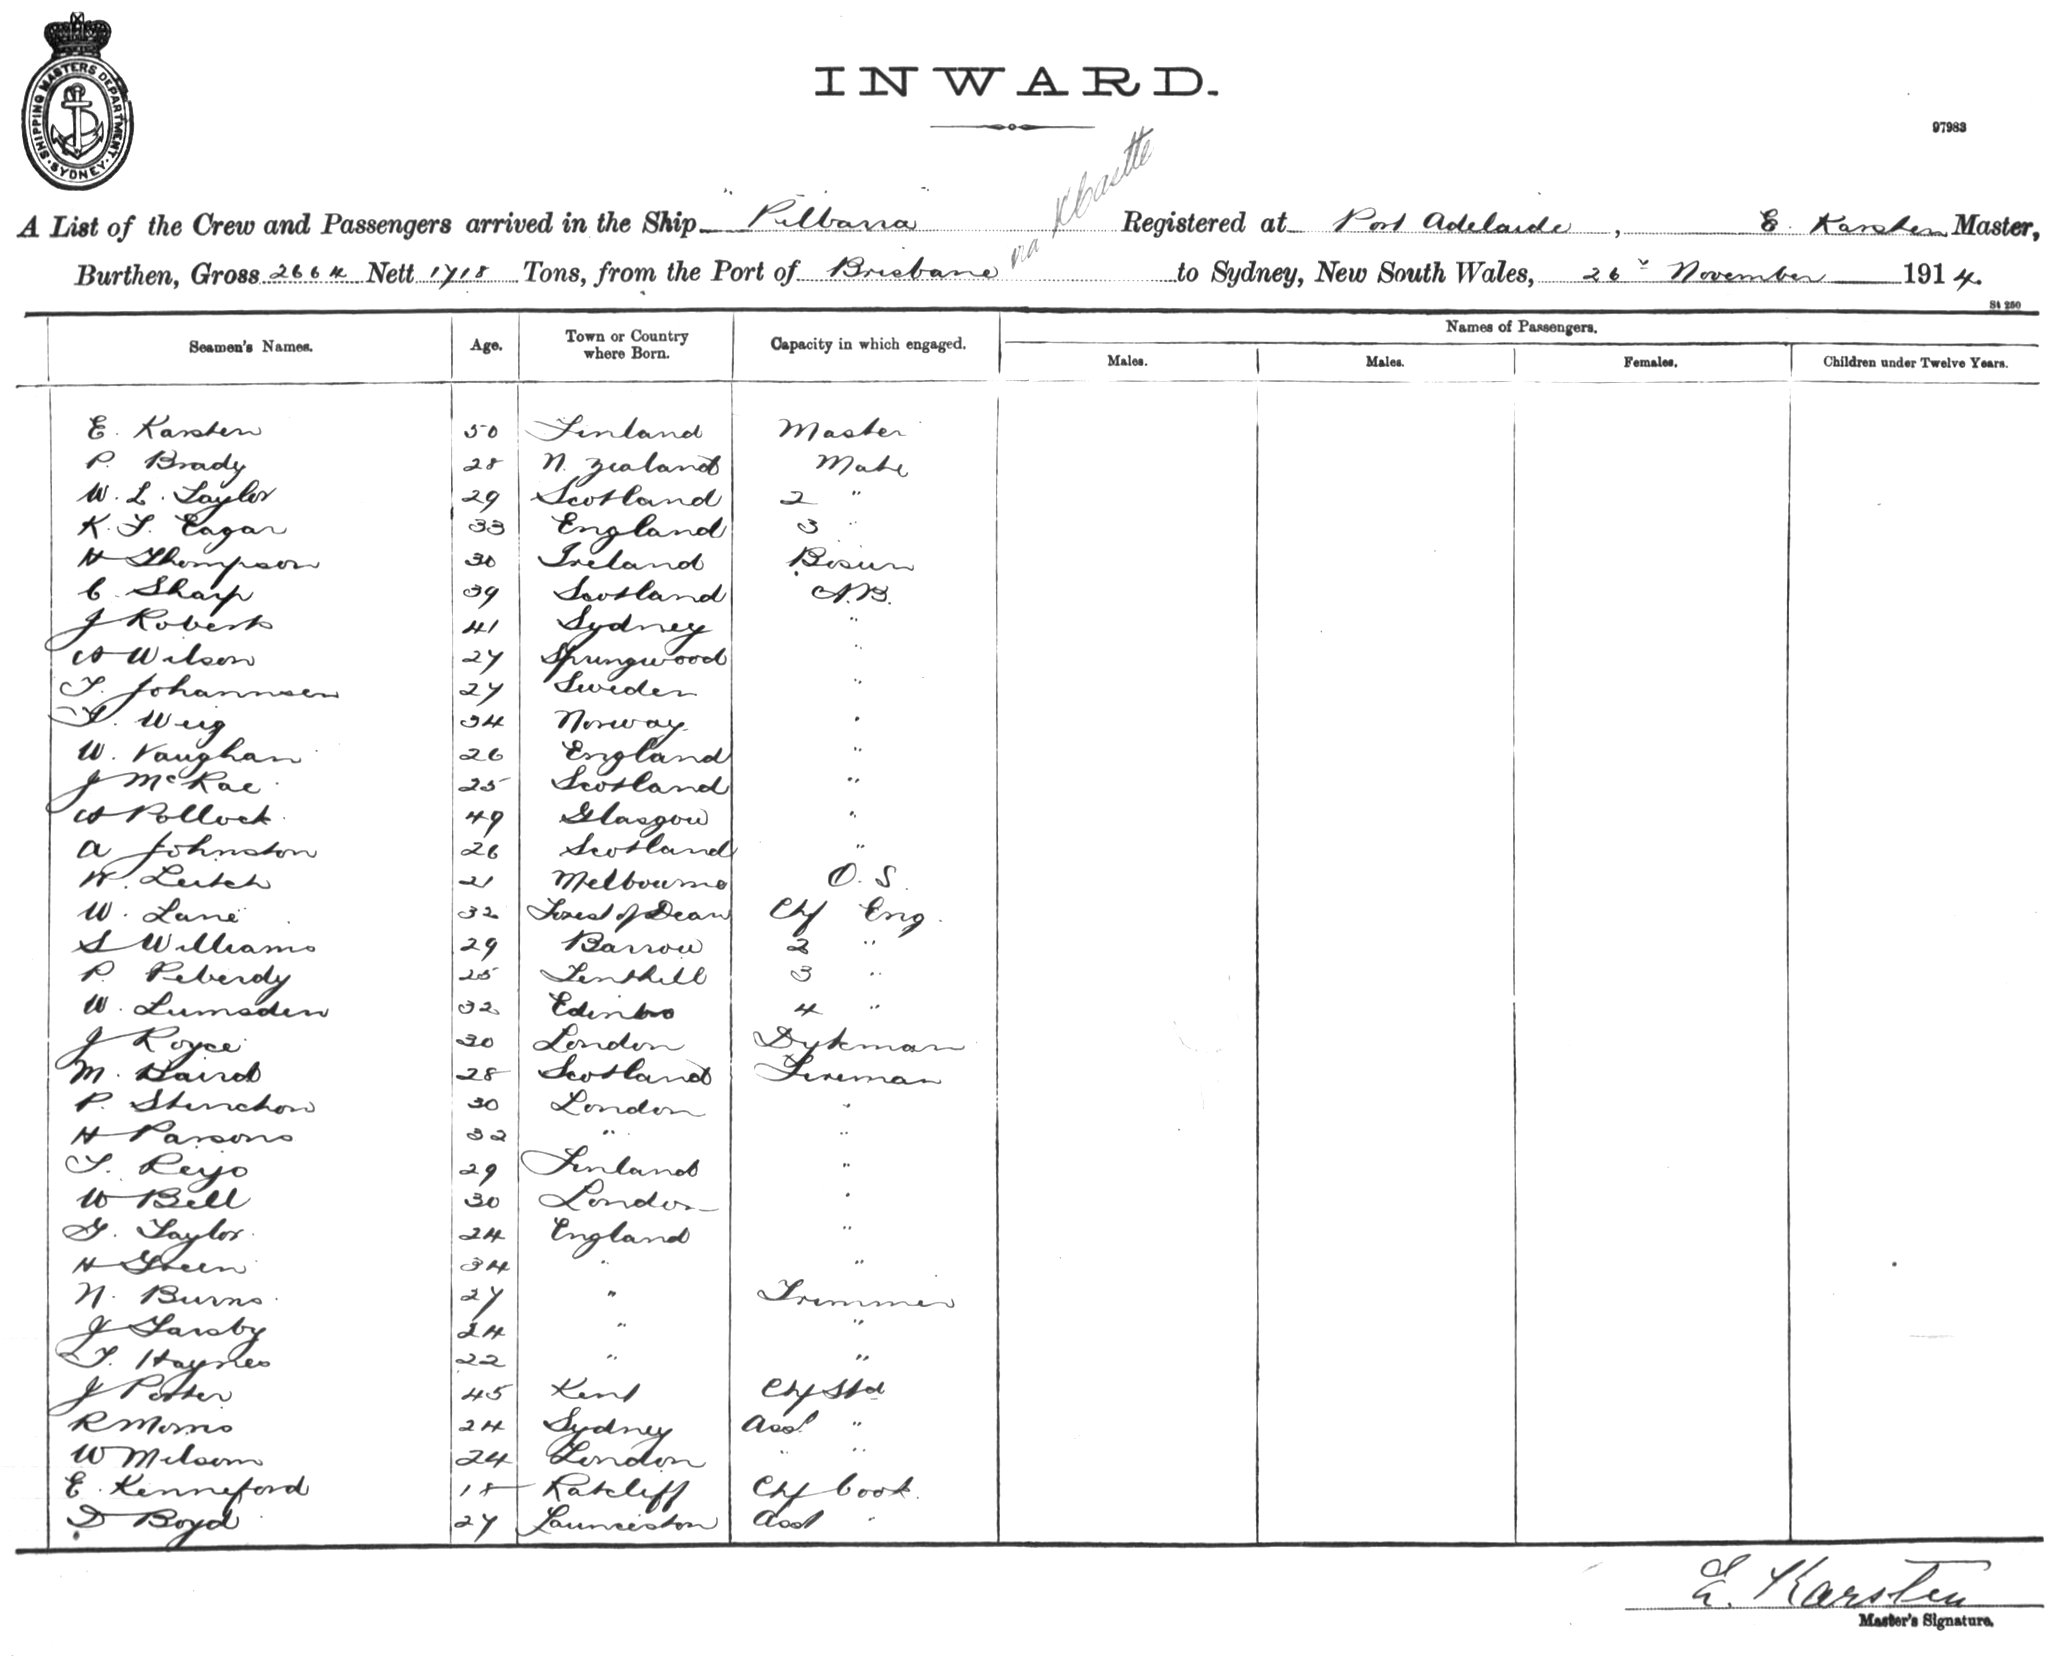 SHIPPING MASTERS DEPARTMENT SYDNEY
INWARD.
97983
A List of the Crew and Passengers arrived in the Ship "Pilbarra" via Registered at Port Adelaide, E. Karsten Master,
Burthen, Gross 2664 Nett 1718 Tons, from the Port of Brisbane to Sydney, New South Wales, 26 November 1914.
St 250
Seamen's Names. Age. Town or Country where Born. Capacity in which engaged. Names of Passengers.
Males. Males. Females. Children under Twelve Years.
E. Karsten 50 Finland Master
P. Brady 28 N. Zealand Mate
W. L. Taylor 29 Scotland 2 "
K. F. Eagar 33 England 3 "
H Thompson 30 Ireland Bosun
C. Sharp 39 Scotland A.B.
J Roberts 41 Sydney "
A Wilson 27 Springwood "
T. Johannsen 27 Sweden "
34 Norway "
W. Vaughan 26 England "
J McRae 25 Scotland "
A Pollock 49 Glasgow "
A Johnston 26 Scotland "
Leitch 21 Melbourne O. S.
W. Lane 32 Forest of Dean Chf Eng.
S Williams 29 Barrow 2 "
P. Peberdy 25 3 "
W. Lumsden 32 Edinbro 4 "
J Royce 30 London Dykman
M. Baird 28 Scotland Fireman
P. Stinchon 30 London "
H Parsons 32 " "
T. Reyo 29 Finland "
W Bell 30 London "
G. Taylor 24 England "
H Green 34 " "
N. Burns 27 " Trimmer
J 24 " "
T. Haynes 22 " "
J Porter 45 Kent Chf Std
R Morris 24 Sydney Asst "
W Milsom 24 London " "
E. Kenneford 18 Ratcliff Chf Cook.
D Boyd 27 Launceston Asst "
E. Karsten
Master's Signature.